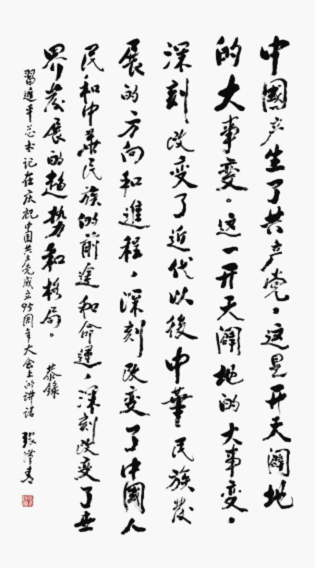 中國产生了共产党，这是开天闢地
的大事变。这一开天闢地的大事变，
深刻改变了近代以後中華民族发
展的方向和進程，深刻改变了中國人
民和中華民族的前途和命運，深刻改变了世
界发展的趋势和格局。
恭録
習近平总书记在庆祝中国共产党成立95周年大会上的讲话